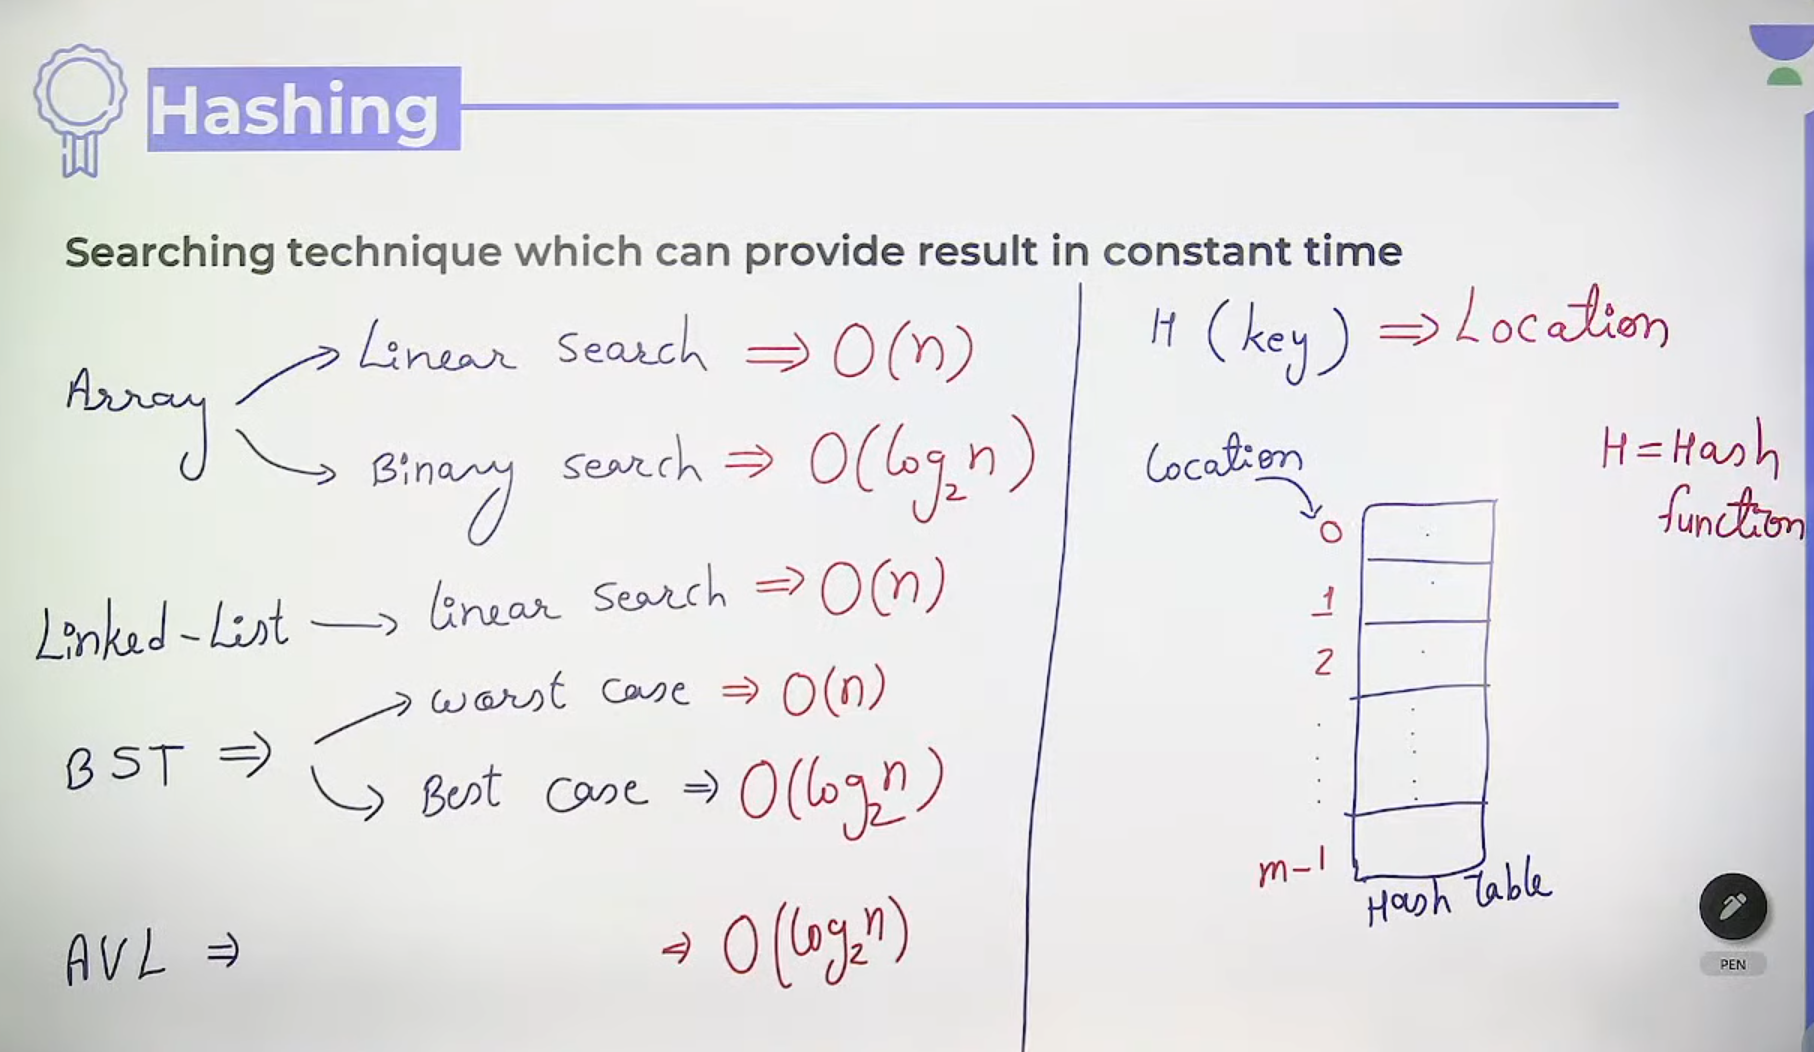 Hashing
Searching technique which can provide result in constant time
Array
Linear search ⇒ O(n)
Binary search ⇒ O(log₂n)
Linked-List → linear search ⇒ O(n)
BST ⇒
worst case ⇒ O(n)
Best case ⇒ O(log₂n)
AVL ⇒ ⇒ O(log₂n)
H (key) ⇒ Location
H = Hash
function
Location
0
1
2
m-1
Hash Table
PEN